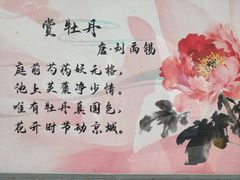 赏牡丹
唐·刘禹锡
庭前芍药妖无格，
池上芙蕖净少情。
唯有牡丹真国色，
花开时节动京城。